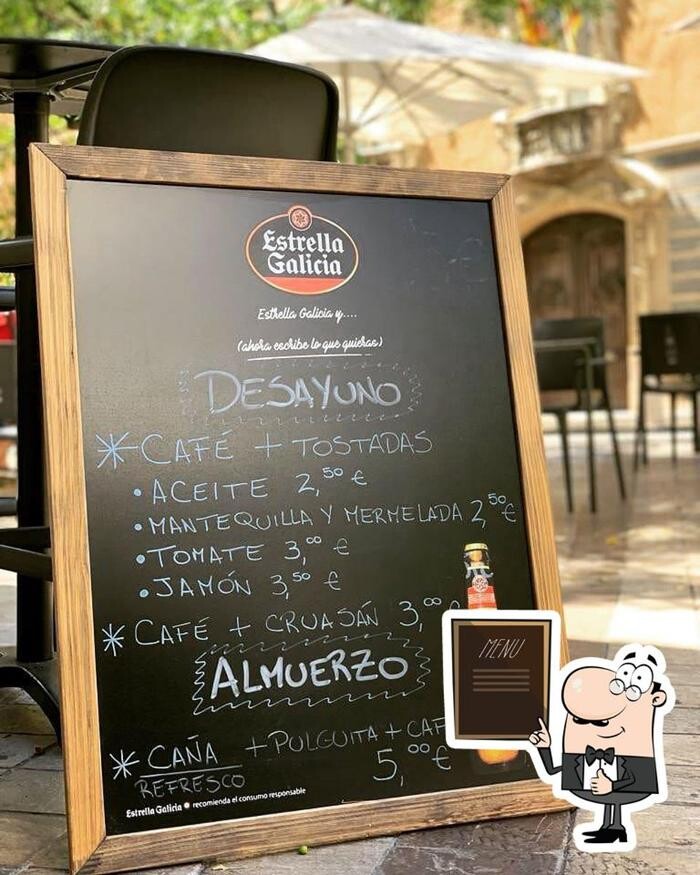 Estrella
Galicia
Estrella Galicia y....
(ahora escribe lo que quieras)
DESAYUNO
* CAFÉ + TOSTADAS
• ACEITE 2,50 €
• MANTEQUILLA Y MERMELADA 2,50 €
• TOMATE 3,00 €
• JAMÓN 3,50 €
* CAFÉ + CRUASÁN 3,00
ALMUERZO
* CAÑA + PULGUITA + CAF
REFRESCO 5,00 €
Estrella Galicia recomienda el consumo responsable
MENU